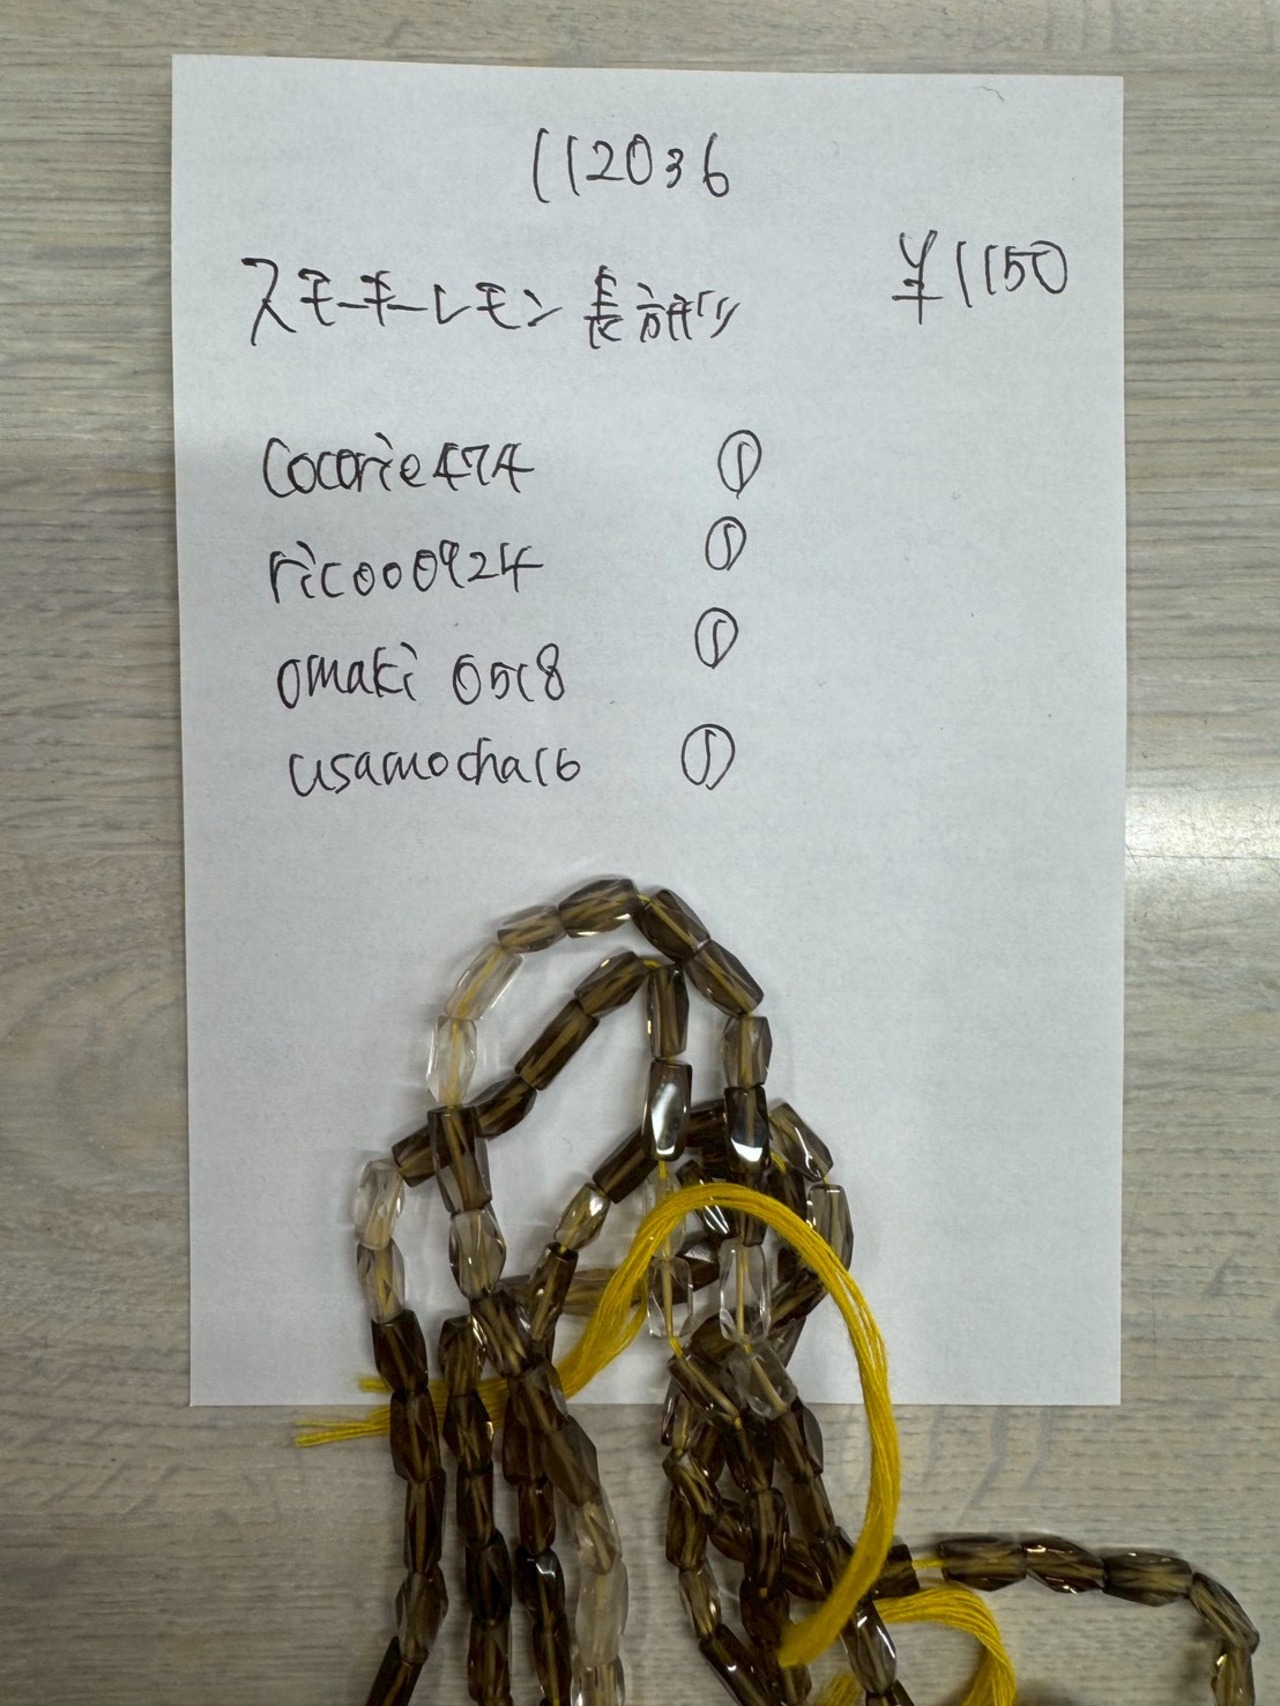 112036
スモーキーレモン 長 ¥1150
cocorie474 ①
ricooo0924 ①
omaki 0518 ①
usamocha16 ①